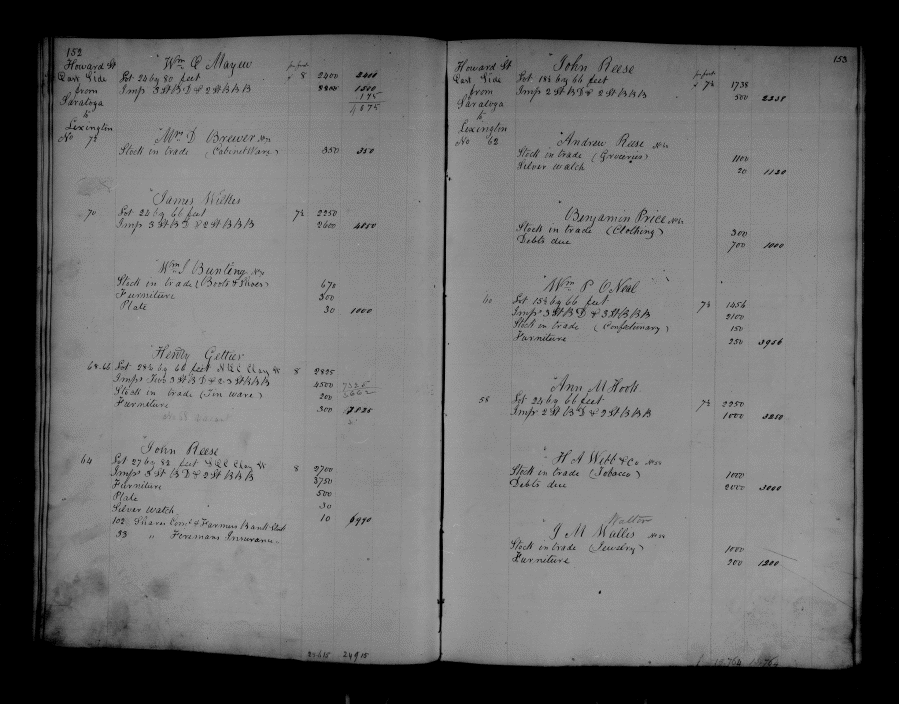 152
Howard St
East Side
from
Saratoga
to
Lexington
No 7½
Wm C Mayew
per foot
Lot 24 by 80 feet 8 2400 2400
Imps 3 St B D & 2 St B B B 1500
175
Mrs D Brewer
Stock in trade (Cabinet Ware) 350 350
James Wilkes
70 Lot 24 by 66 feet 7½ 2250
Imps 3 St B D & 2 St B B B 2600 4850
Wm S Bunting
Stock in trade (Boots & Shoes) 670
Furniture 300
Plate 30 1000
Henry Gettier
68.66 Lot 28½ by 66 feet 8 2825
Imps Two 3 St B D & 2 3 St B B B 4500 7325
Stock in trade (Tin ware) 200 3662
Furniture 300 7825
John Reese
64 Lot 27 by 82 feet 8 2700
Imps 3 St B D & 2 St B B B 3750
Furniture 500
Plate 30
Silver Watch 10 6990
102 Shares Coml & Farmers Bank Stock
33 " Firemans Insurance
24615 24915
153
Howard St
East Side
from
Saratoga
to
Lexington
No 62
John Reese
per foot
Lot 18½ by 66 feet 7½ 1738
Imps 2 St B D & 2 St B B B 500 2238
Andrew Reese
Stock in trade (Groceries) 1100
Silver Watch 20 1120
Benjamin Price
Stock in trade (Clothing) 300
Debts due 700 1000
Wm P O Neal
60 Lot 15½ by 66 feet 7½ 1456
Imps 3 St B D & 3 St B B B 2100
Stock in trade (Confectionary) 150
Furniture 250 3956
Ann M Hook
58 Lot 24 by 66 feet 7½ 2250
Imps 2 St B D & 2 St B B B 1000 3250
H A Webb & Co
Stock in trade (Tobacco) 1000
Debts due 2000 3000
Walter
J M Wallis
Stock in trade (Jewelry) 1000
Furniture 200 1200